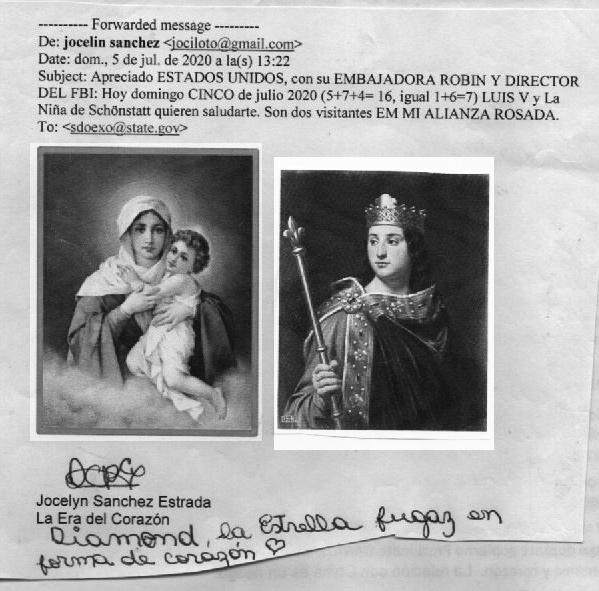 ---------- Forwarded message ---------
De: jocelin sanchez <jociloto@gmail.com>
Date: dom., 5 de jul. de 2020 a la(s) 13:22
Subject: Apreciado ESTADOS UNIDOS, con su EMBAJADORA ROBIN Y DIRECTOR
DEL FBI: Hoy domingo CINCO de julio 2020 (5+7+4= 16, igual 1+6=7) LUIS V y La
Niña de Schönstatt quieren saludarte. Son dos visitantes EM MI ALIANZA ROSADA.
To: <sdoexo@state.gov>
Jocelyn Sanchez Estrada
La Era del Corazón
Diamond, la Estrella fugaz en
forma de corazón ♡